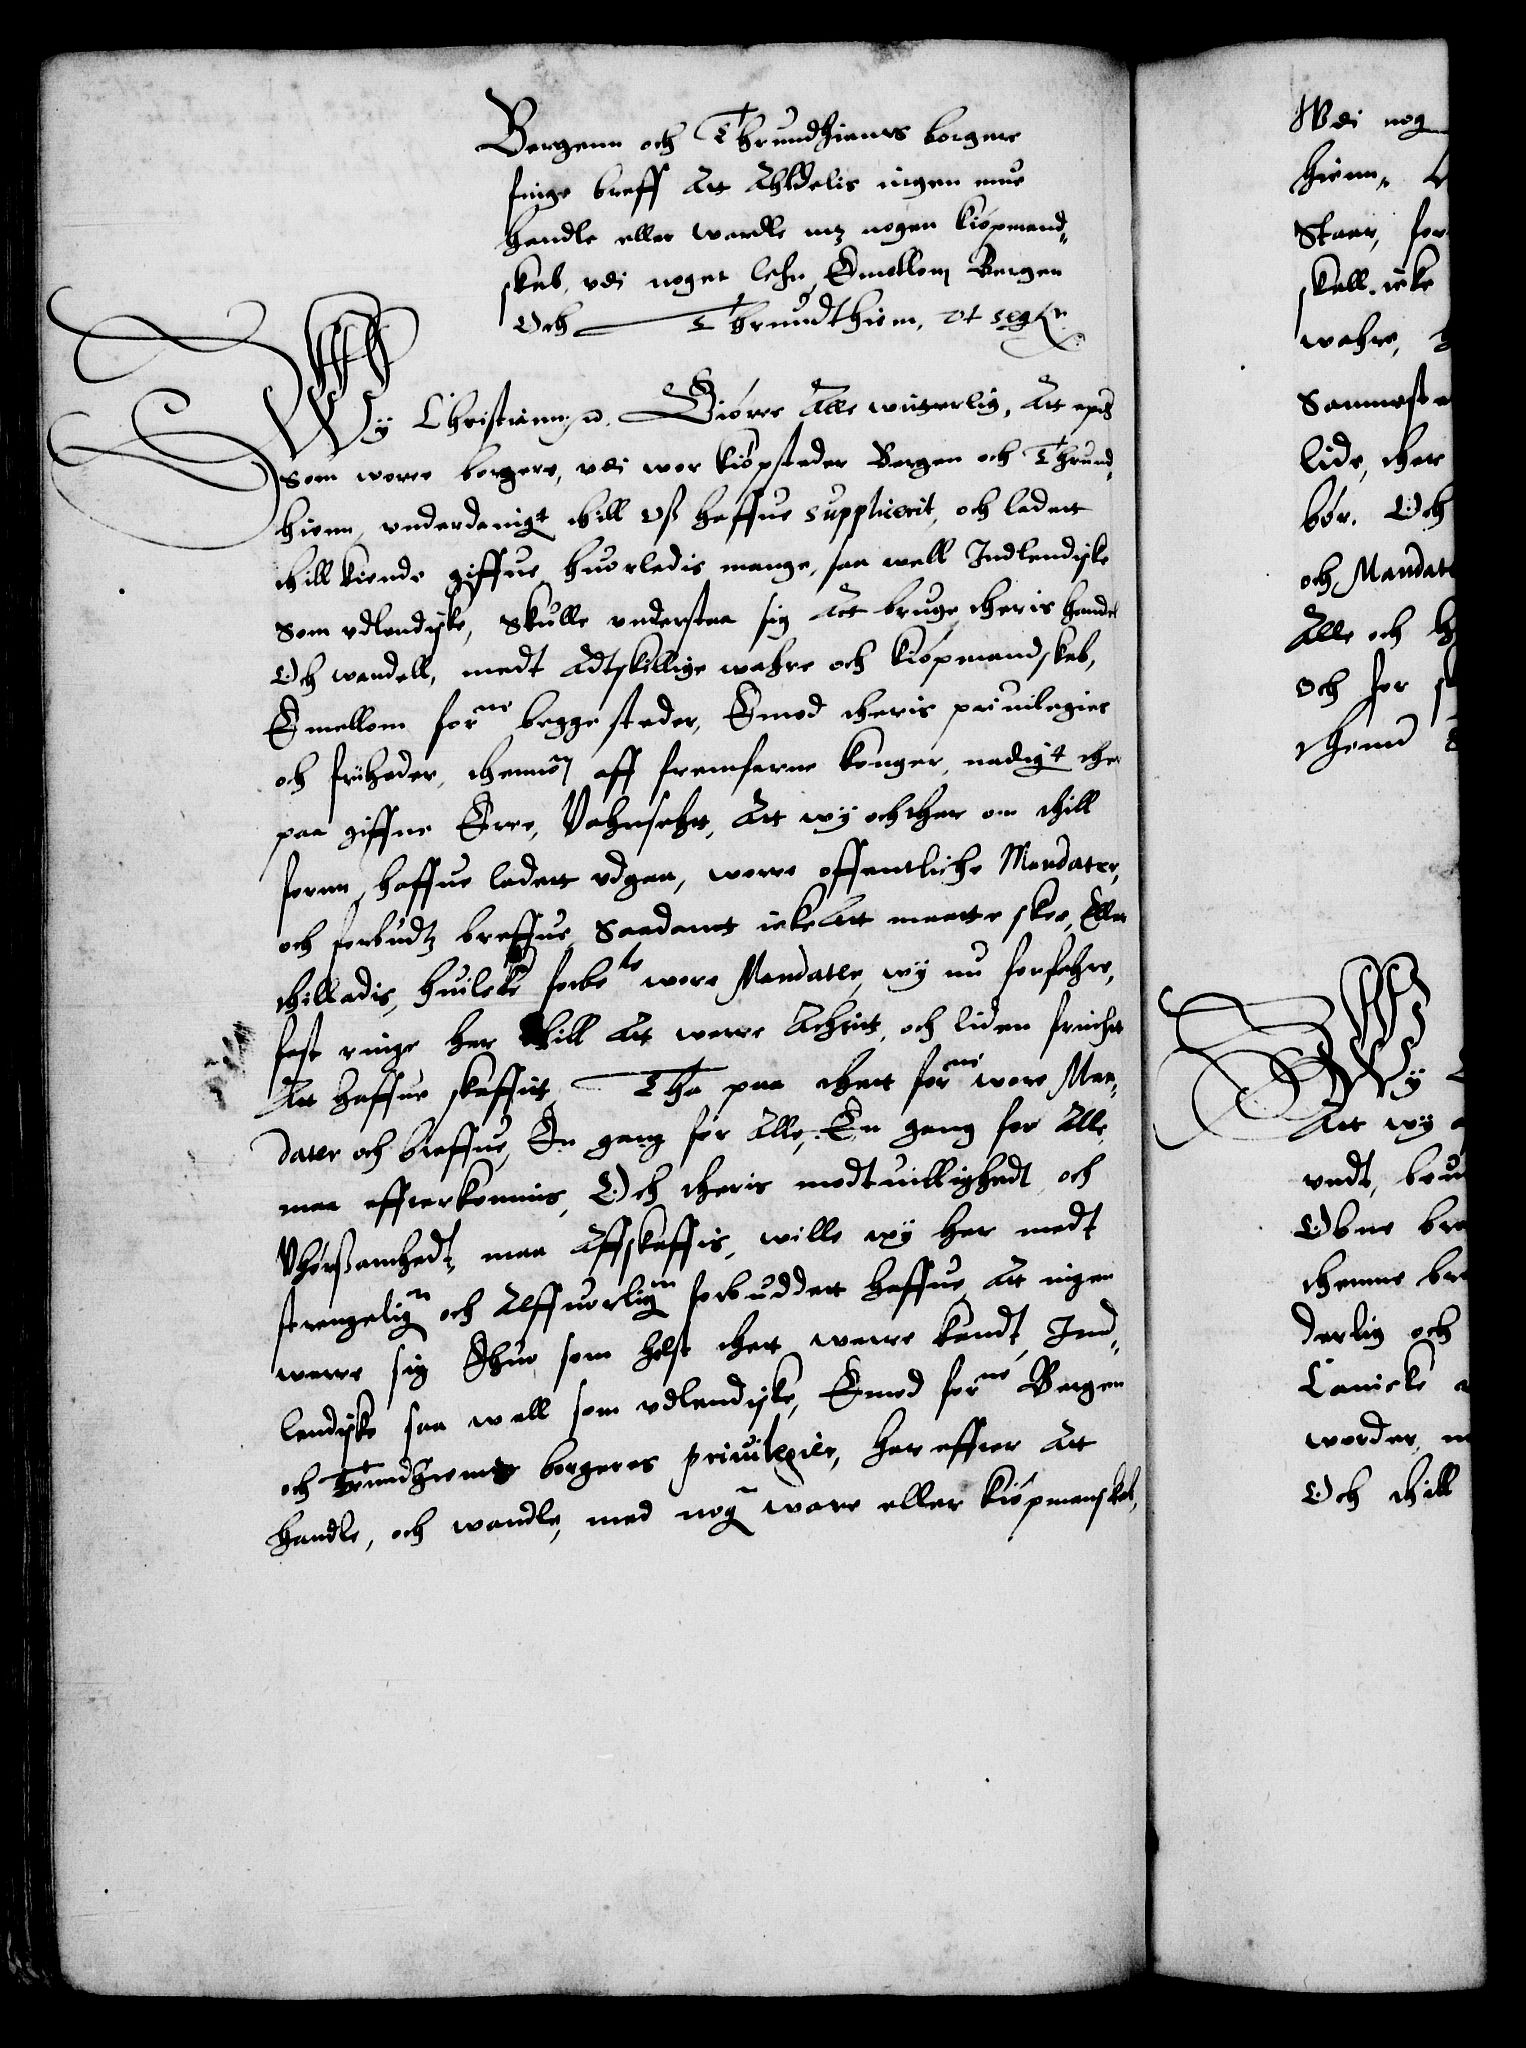 Bergenn och Thrundhiems borgere
finge breff Att Althdelis ingen mue
handle eller wandle mz nogen kiøpmand„
skab, vdi noget lehn, Emellom Bergen
Och Thrundthiem. vt seqr.
Wy Christiann, etc. Giøre Alle witterlig, Att epth
Som worre borgere, vdi wor kiøpsteder Bergen och Thrund„
hiem, vnderdanigt thill oß haffue supplicerit, och ladett
thillkiende giffue, huorledis mange, saa well Indlendiske
Som vdlendiske, Skulle vnderstaa sig Att bruge theris handel
Och wandell, medt Adtskillige wahre och kiøpmandskab,
Emellom forne begge steder, Emod theris priuilegier
och friiheder, thennom aff fremfarne konger, nadigt ther
paa giffne Erre, Vahnsehet, Att wy och ther om thill
fornn, haffue ladett vdgaa, worre offentliche Mandater,
och forbudtz breffue Saadannt icke Att maatte skee, Eller
thilladis, huilcke forbete wore Mandater, wy nu forfahre,
fast ringe her thill Att were Achtit, och liden frucht
Att haffue skaffit, Tha paa thett forne wore Man„
dater och breffue, En gang for Alle, En gang for Alle,
maa effterkommis, Och theris modtuillighedt och
Vhørßamhedt, maa Affskaffis, wille wy her medt
strengelign och Alffuorligen forbuddett haffue, Att ingen
werre sig Ehuo som helst thett werre kandt, Ind„
lendiske saa well som vdlendiske, Emod forne Bergen
och Trundhiems borgeres priuilegier, her effter Att
handle, och wandle, med nogn ware eller kiøpmanskab,
Wdi nog
hiem„
Staar, for
skall icke
wahre,
Sammest
lide, ther
bør. Och
och Mandat
Alle och
och for
thennd
Wy
Att wy
vndt,
Obne bre
thenne bre
derlig och
Canicke
worder,
Och thill